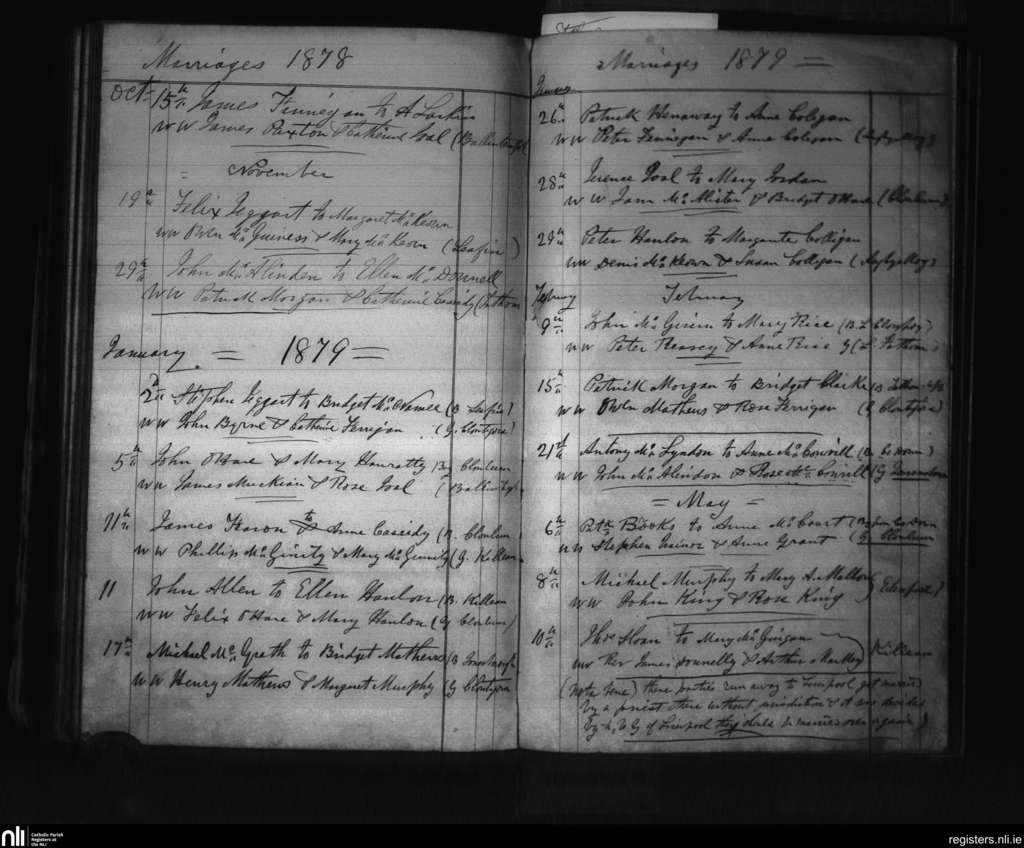 Marriages 1878
Oct 15th James Finnegan to A Larkin
ww James Paxton & Catherine Goal
= November
19th Felix Teggart to Margaret McKeown
ww Owen McGuiness & Mary McKeown (Leafin)
29th John McAlinden to Ellen McDonnell
ww Patrick Morgan & Catherine Cassidy (Fathom
January = 1879 =
2nd Stephen Teggart to Bridget McNamee (B Leafin)
ww John Byrne & Catherine Ferrigan (G. Clontygora)
5th John OHare & Mary Hanratty (B. Clonlum
ww James & Rose Goal
11th James Fearon to Anne Cassidy (B. Clonlum)
ww Phillip McGinity & Mary McGinity (G. Killeen
11 John Allen to Ellen Hanlon (B. Killeen
ww Felix OHare & Mary Hanlon (G Clonlum)
17th Michael McGrath to Bridget Mathews (B Jonesborough
ww Henry Mathews & Margaret Murphy (G Clontygora
Marriages 1879 =
January
26th Patrick Henaway to Anne Colegan
ww Peter Finnigan & Anne Colegan
28th Terence Goal to Mary Jordan
ww McAlister & Bridget OHare (Clonlum)
29th Peter Hanlon to Margarete Colligan
ww Denis McKeown & Susan Colligan
February
February
9th John McGivern to Mary Rice
ww Peter & Anne Rice G (L. Fathom)
15th Patrick Morgan to Bridget Clarke
ww Owen Mathews & Rose Ferrigan (G Clontygora)
21st Antony McLyndon to Anne McConvill (B. Co Down)
ww John McAlindon & Rose McConvill (G
= May =
6th Patk Books to Anne McCourt
ww Stephen Trainor & Anne Grant (G. Clonlum
8th Michael Murphy to Mary A. Mallon
ww John King & Rose King
10th Thos Sloan to Mary McGuigan
ww Rev James Donnelly & Arthur Killeen
(Nota bene) these parties run away to Liverpool got married
by a priest there without jurisdiction & it was decided
by the V G of Liverpool they should be married over again)
nli
Catholic Parish
Registers at
the NLI
registers.nli.ie